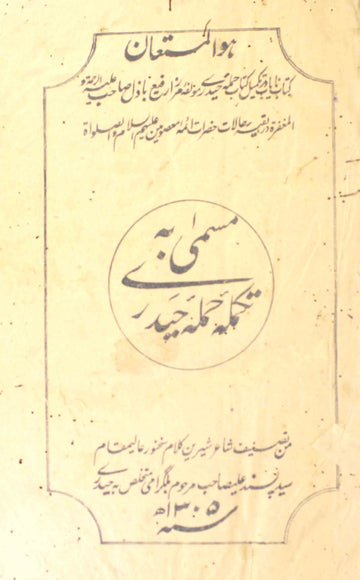 هو المستعان
کتاب نایاب تکمیل کتاب حمله حیدری مولفه مرزا رفیع باذل صاحب علیه الرحمة و
المغفرة در بقیه حالات حضرات ائمه معصومین علیهم السلام والصلواة
مسمیٰ به
تکملهٔ حملهٔ حیدری
من تصنیف شاعر شیرین کلام سخنور عالیمقام
سید پسند علیصاحب مرحوم بلگرامی متخلص به حیدری
سنه ۱۳۰۵ھ